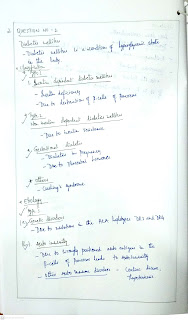 QUESTION NO - 2
Diabetes mellitus
- Diabetes mellitus is a condition of hyperglycemic state
in the body.
Type 1
Insulin dependent diabetes mellitus
- Insulin deficiency
- Due to destruction of β-cells of pancreas
Type 2
Non insulin dependent diabetes mellitus
- Due to insulin resistance
Gestational diabetes
- Diabetes in pregnancy
- Due to placental hormones
Others
- Cushing's syndrome
Etiology
Type 1
a) Genetic
- Due to mutation in the HLA haplotypes DR3 and DR4
b) Auto immunity
- Due to wrongly
β-cells of pancreas leads to autoimmunity
- Other auto immune diseases - Celiac disease,